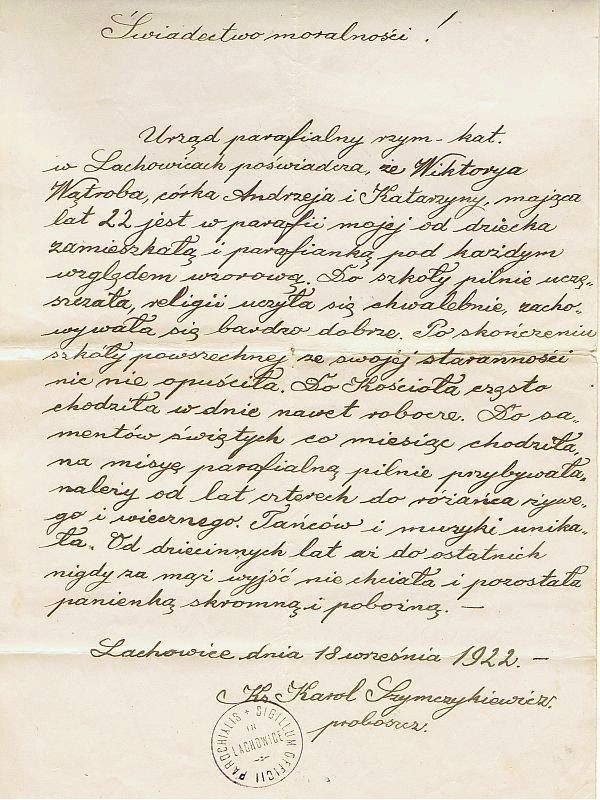 Świadectwo moralności!
Urząd parafialny rzym-kat.
w Lachowicach poświadcza, że Wiktorya
Wątroba, córka Andrzeja i Katarzyny, mająca
lat 22 jest w parafii mojej od dziecka
zamieszkałą i parafianką pod każdym
względem wzorową. Do szkoły pilnie uczę-
szczała, religii uczyła się chwalebnie, zacho-
wywała się bardzo dobrze. Po skończeniu
szkoły powszechnej ze swojej staranności
nic nie opuściła. Do Kościoła często
chodziła w dnie nawet robocze. Do sa-
mentów świętych co miesiąc chodziła,
na misyę parafialną pilnie przybywała,
należy od lat czterech do różańca żywe-
go i wiecznego. Tańców i muzyki unika-
ła. Od dziecinnych lat aż do ostatnich
nigdy za mąż wyjść nie chciała i pozostała
panienką skromną i pobożną. —
Lachowice dnia 18 września 1922. —
Ks. Karol Szymczykiewicz.
proboszcz.
SIGILLUM OFFICII PAROCHIALIS +
IN
LACHOWICE